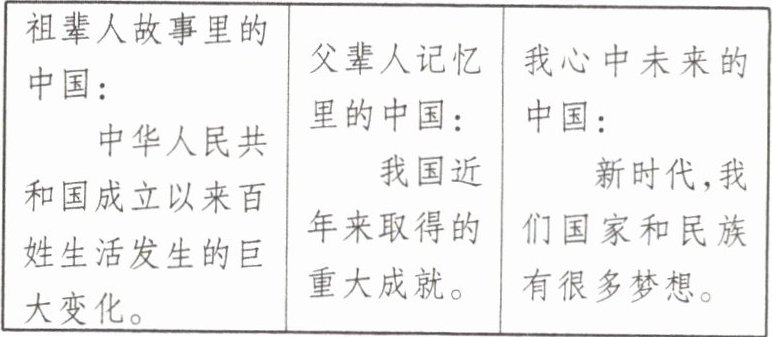 祖辈人故事里的
中国：
中华人民共
和国成立以来百
姓生活发生的巨
大变化。
父辈人记忆
里的中国：
我国近
年来取得的
重大成就。
我心中未来的
中国：
新时代，我
们国家和民族
有很多梦想。